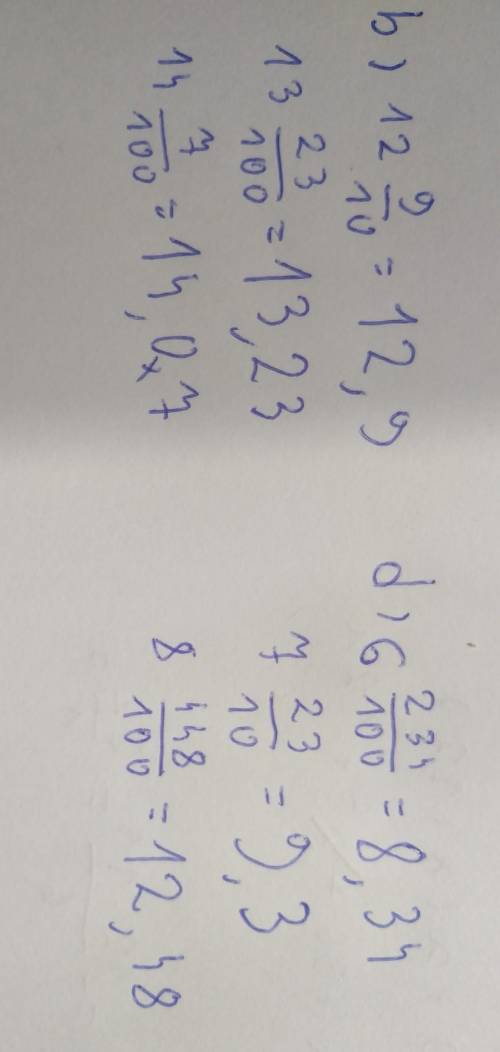 b) 12 9/10 = 12,9
13 23/100 = 13,23
14 7/100 = 14,07
d) 6 234/100 = 8,34
7 23/10 = 9,3
8 448/100 = 12,48